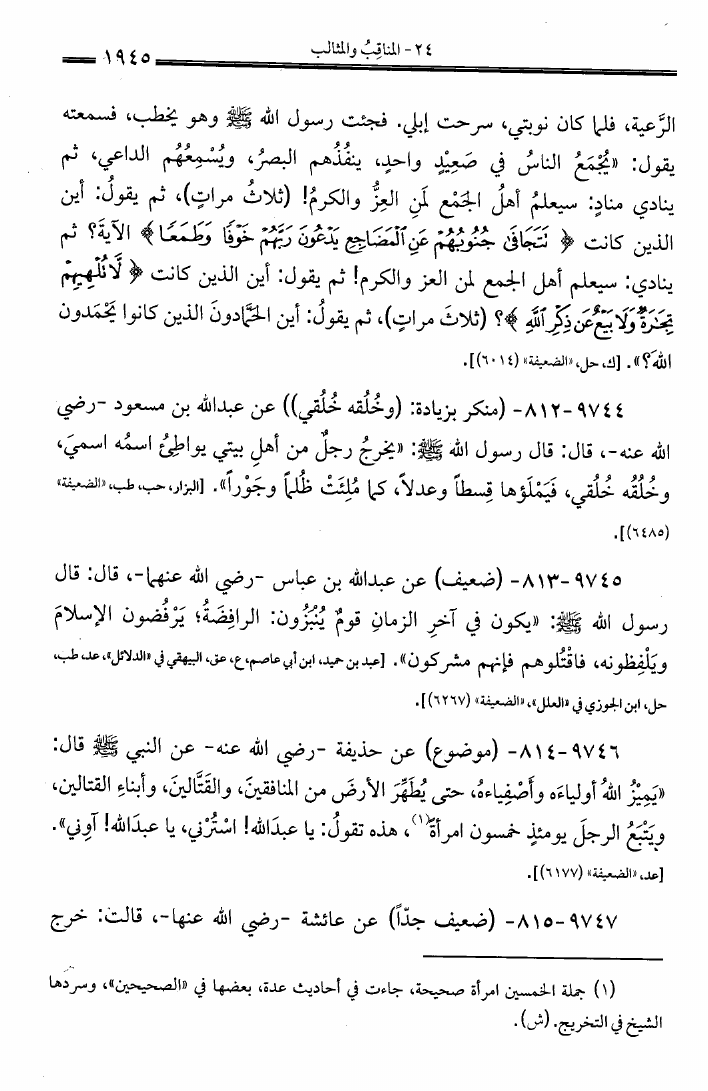 ٢٤- المناقِبُ والمثالب
١٩٤٥
الرَّعية، فلما كان نوبتي، سرحت إبلي. فجئت رسول الله ﷺ وهو يخطب، فسمعته
يقول: «يُجْمَعُ الناسُ في صَعِيْدٍ واحدٍ، ينفُذُهم البصرُ، ويُسْمِعُهُم الداعي، ثم
ينادي منادٍ: سيعلمُ أهلُ الجَمْعِ لمَنِ العِزُّ والكرمُ! (ثلاثُ مراتٍ)، ثم يقولُ: أين
الذين كانت ﴿ نَتَجَافَىٰ جُنُوبُهُمْ عَنِ ٱلْمَضَاجِعِ يَدْعُونَ رَبَّهُمْ خَوْفًا وَطَمَعًا﴾ الآيةَ؟ ثم
ينادي: سيعلم أهل الجمع لمن العز والكرم! ثم يقول: أين الذين كانت ﴿ لَّا تُلْهِيهِمْ
تِجَٰرَةٌ وَلَا بَيْعٌ عَن ذِكْرِ ٱللَّهِ ﴾؟ (ثلاثَ مراتٍ)، ثم يقولُ: أين الحَمَّادونَ الذين كانوا يَحْمَدون
اللهَ؟». [ك، حل، «الضعيفة» (٦٠١٤)].
٩٧٤٤-٨١٢- (منكر بزيادة: (وخُلُقه خُلُقي)) عن عبدالله بن مسعود -رضي
الله عنه-، قال: قال رسول الله ﷺ: «يخرجُ رجلٌ من أهلِ بيتي يواطِئُ اسمُه اسميَ،
وخُلُقُه خُلُقي، فَيَمْلَؤها قِسطاً وعدلاً، كما مُلِئَتْ ظُلماً وجَوْراً». [البزار، حب، طب، «الضعيفة»
(٦٤٨٥)].
٩٧٤٥-٨١٣- (ضعيف) عن عبدالله بن عباس -رضي الله عنهما-، قال: قال
رسول الله ﷺ: «يكون في آخرِ الزمانِ قومٌ يُنْبَزُون: الرافِضَةُ؛ يَرْفُضون الإسلامَ
ويَلْفِظونه، فاقْتُلوهم فإنهم مشركون». [عبد بن حميد، ابن أبي عاصم، ع، عق، البيهقي في «الدلائل»، عد، طب،
حل، ابن الجوزي في «العلل»، «الضعيفة» (٦٢٦٧)].
٩٧٤٦-٨١٤- (موضوع) عن حذيفة -رضي الله عنه- عن النبي ﷺ قال:
«يَمِيْزُ اللهُ أولياءَه وأَصْفِياءهُ، حتى يُطَهِّرَ الأرضَ من المنافقينَ، والقَتَّالينَ، وأبناءِ القتالين،
ويَتْبَعُ الرجلَ يومئذٍ خمسون امرأةً(١)، هذه تقولُ: يا عبدَالله! اسْتُرْني، يا عبدَالله! آوِني».
[عد، «الضعيفة» (٦١٧٧)].
٩٧٤٧-٨١٥- (ضعيف جدّاً) عن عائشة -رضي الله عنها-، قالت: خرج
(١) جملة الخمسين امرأة صحيحة، جاءت في أحاديث عدة، بعضها في «الصحيحين»، وسردها
الشيخ في التخريج. (ش).